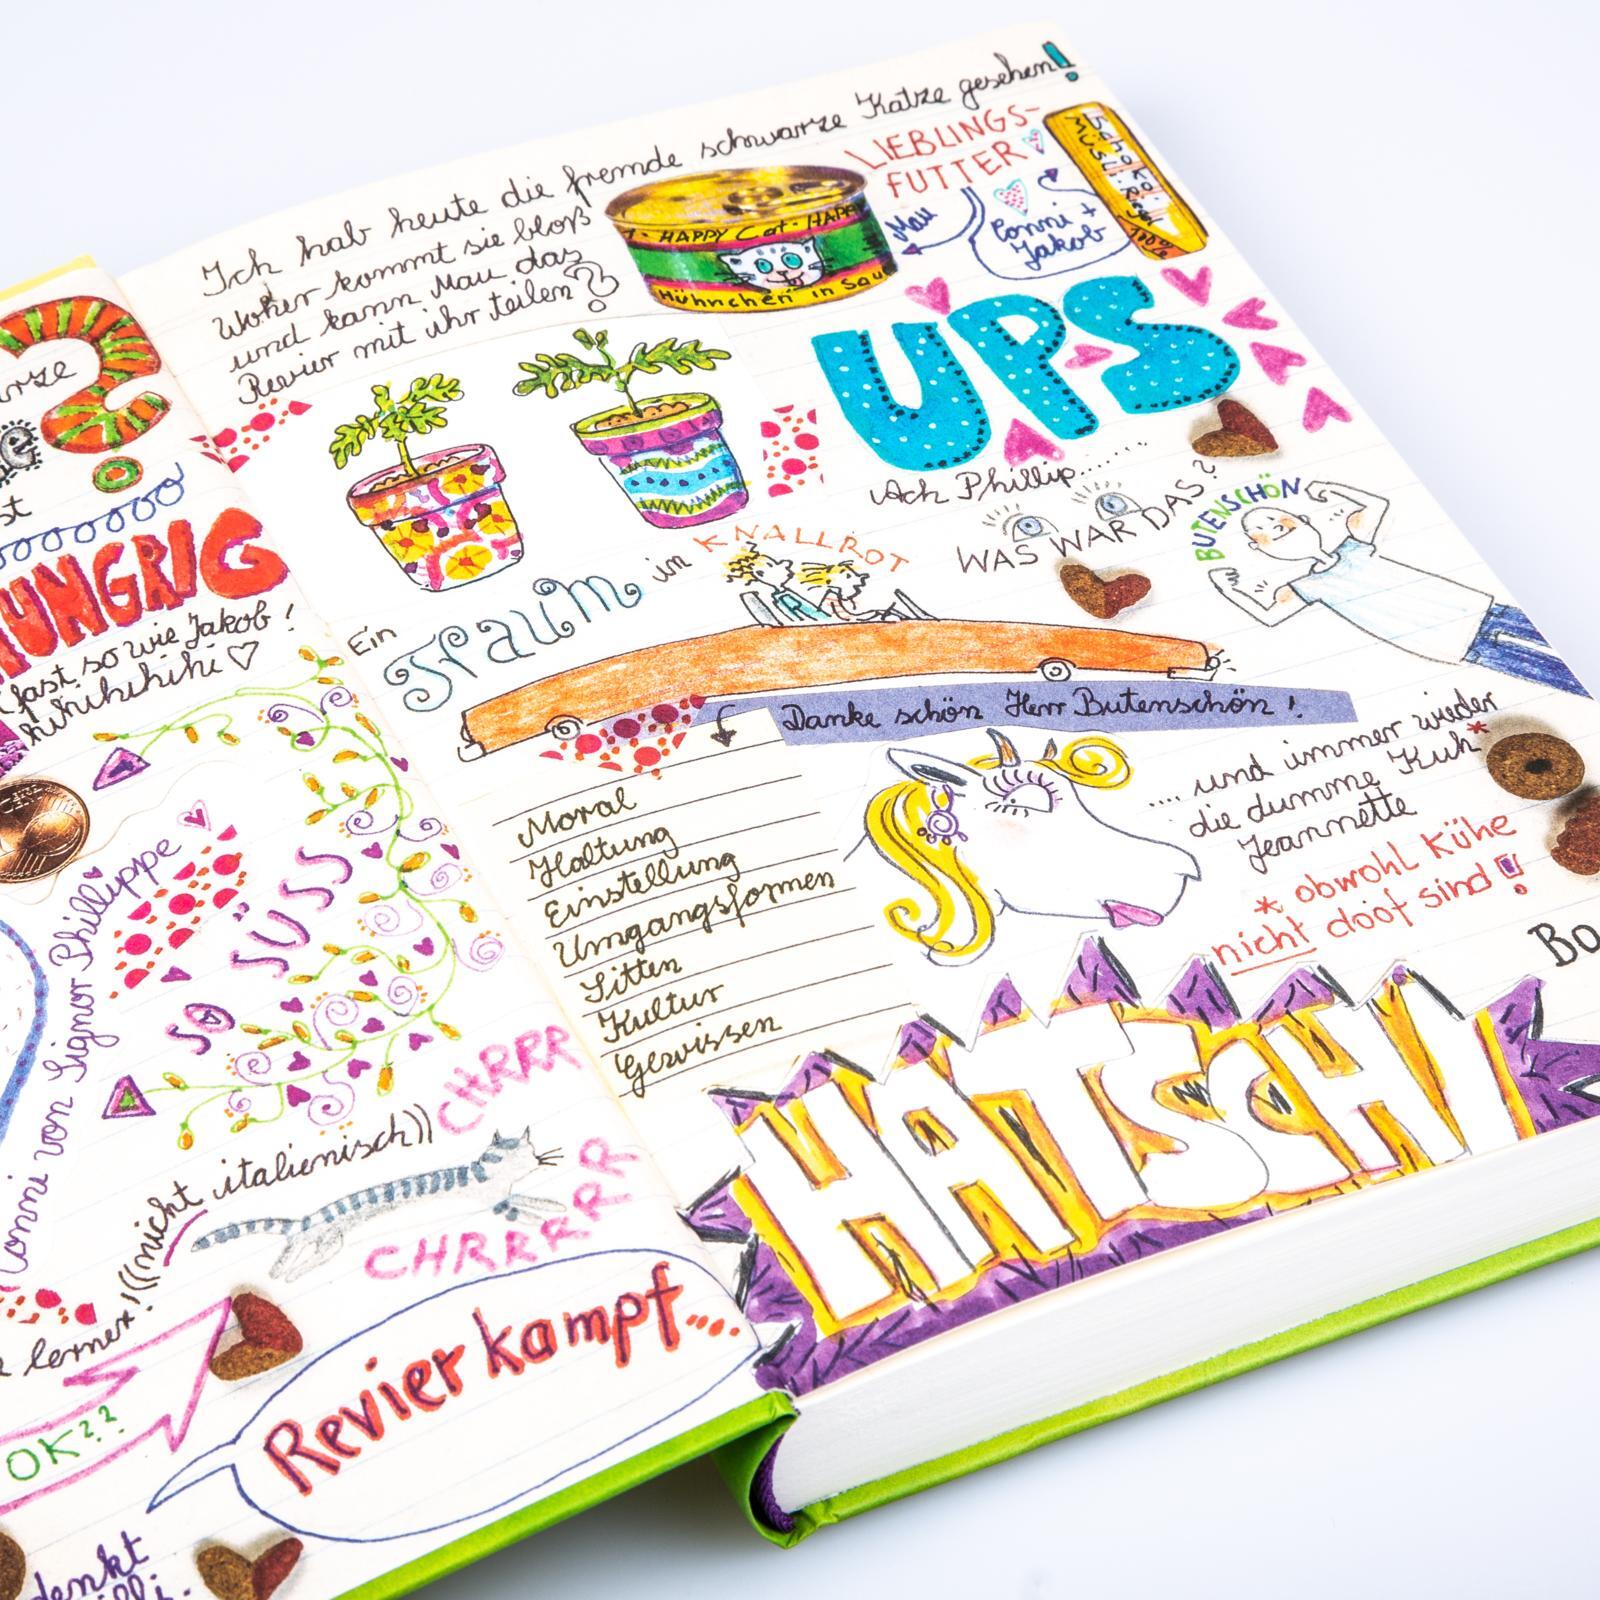 st
HUNGRIG
fast so wie Jakob!
hihihihihi
Conni von Signor Phillippe
SO SÜSS
((nicht italienisch))
CHRRR
CHRRRRRR
lernex!
OK??
Revierkampf...
denkt
Ich hab heute die fremde schwarze Katze gesehen!
Woher kommt sie bloß
und kann Mau das
Revier mit ihr teilen?
HAPPY Cat · HAPP
Hühnchen in Sau
LIEBLINGS-
FUTTER
Mau
Conni +
Jakob
Schoko
MÜSLI-Riegel
UPS
Ach Phillip.......
WAS WAR DAS?
BUTENSCHÖN
Ein Traum in KNALLROT
Danke schön Herr Butenschön!
Moral
Haltung
Einstellung
Umgangsformen
Sitten
Kultur
Gewissen
.... und immer wieder
die dumme Kuh*
Jeannette
* obwohl Kühe
nicht doof sind!
Bo
HATSCHI